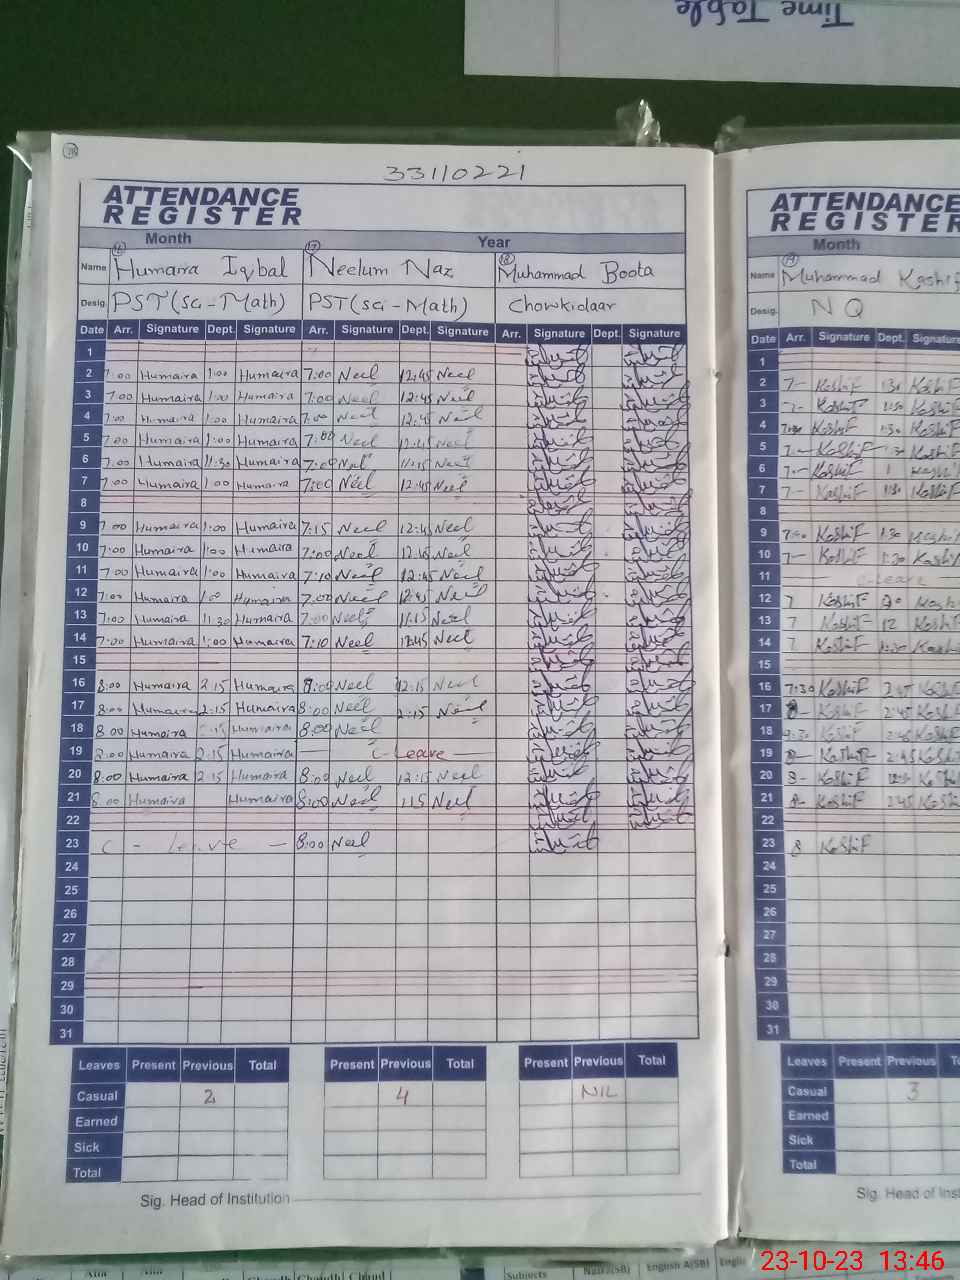 Time Table
33110221
ATTENDANCE REGISTER
Month Year
Name Humaira Iqbal Neelum Naz Muhammad Boota
Desig. PST(Sci-Math) PST(Sci-Math) Chowkidaar
Date Arr. Signature Dept. Signature Arr. Signature Dept. Signature Arr. Signature Dept. Signature
1
2 7:00 Humaira 1:00 Humaira 7:00 Neel 12:45 Neel
3 7:00 Humaira 1:00 Humaira 7:00 Neel 12:45 Neel
4 7:00 Humaira 1:00 Humaira 7:00 Neel 12:45 Neel
5 7:00 Humaira 1:00 Humaira 7:00 Neel 12:45 Neel
6 7:00 Humaira 11:30 Humaira 7:00 Neel 11:15 Neel
7 7:00 Humaira 1:00 Humaira 7:00 Neel 12:45 Neel
8
9 7:00 Humaira 1:00 Humaira 7:15 Neel 12:45 Neel
10 7:00 Humaira 1:00 Humaira 7:00 Neel 12:45 Neel
11 7:00 Humaira 1:00 Humaira 7:10 Neel 12:45 Neel
12 7:00 Humaira 1:00 Humaira 7:00 Neel 12:45 Neel
13 7:00 Humaira 11:30 Humaira 7:00 Neel 11:15 Neel
14 7:00 Humaira 1:00 Humaira 7:10 Neel 12:45 Neel
15
16 8:00 Humaira 2:15 Humaira 8:00 Neel 12:15 Neel
17 8:00 Humaira 2:15 Humaira 8:00 Neel 2:15 Neel
18 8:00 Humaira Humaira 8:00 Neel
19 8:00 Humaira 2:15 Humaira C-Leave
20 8:00 Humaira 2:15 Humaira 8:00 Neel 12:15 Neel
21 8:00 Humaira Humaira 8:00 Neel 115 Neel
22
23 C - Leave - 8:00 Neel
24
25
26
27
28
29
30
31
Leaves Present Previous Total Present Previous Total Present Previous Total
Casual 2 4 NIL
Earned
Sick
Total
Sig. Head of Institution
ATTENDANCE
REGISTER
Month
Name Muhammad Kashif
Desig. N Q
Date Arr. Signature Dept.
1
2 7- Kashif 1:30 Kashif
3 Kashif Kashif
4 Kashif 1:30 Kashif
5 Kashif Kashif
6 Kashif 1
7 7- Kashif 1:30 Kashif
8
9 Kashif 1:30 Kashif
10 7- Kashif 1:30 Kashif
11 C-Leave
12 7 Kashif Kashif
13 7 Kashif 12 Kashif
14 7 Kashif Kashif
15
16 7:30 Kashif 2:45 Kashif
17 8- Kashif 2:45 Kashif
18 Kashif 2:45 Kashif
19 8- Kashif 2:45 Kashif
20 8- Kashif Kashif
21 8- Kashif 2:45 Kashif
22
23 8 Kashif
24
25
26
27
28
29
30
31
Leaves Present Previous
Casual 3
Earned
Sick
Total
Sig. Head of
Subjects English A(SB)
23-10-23 13:46